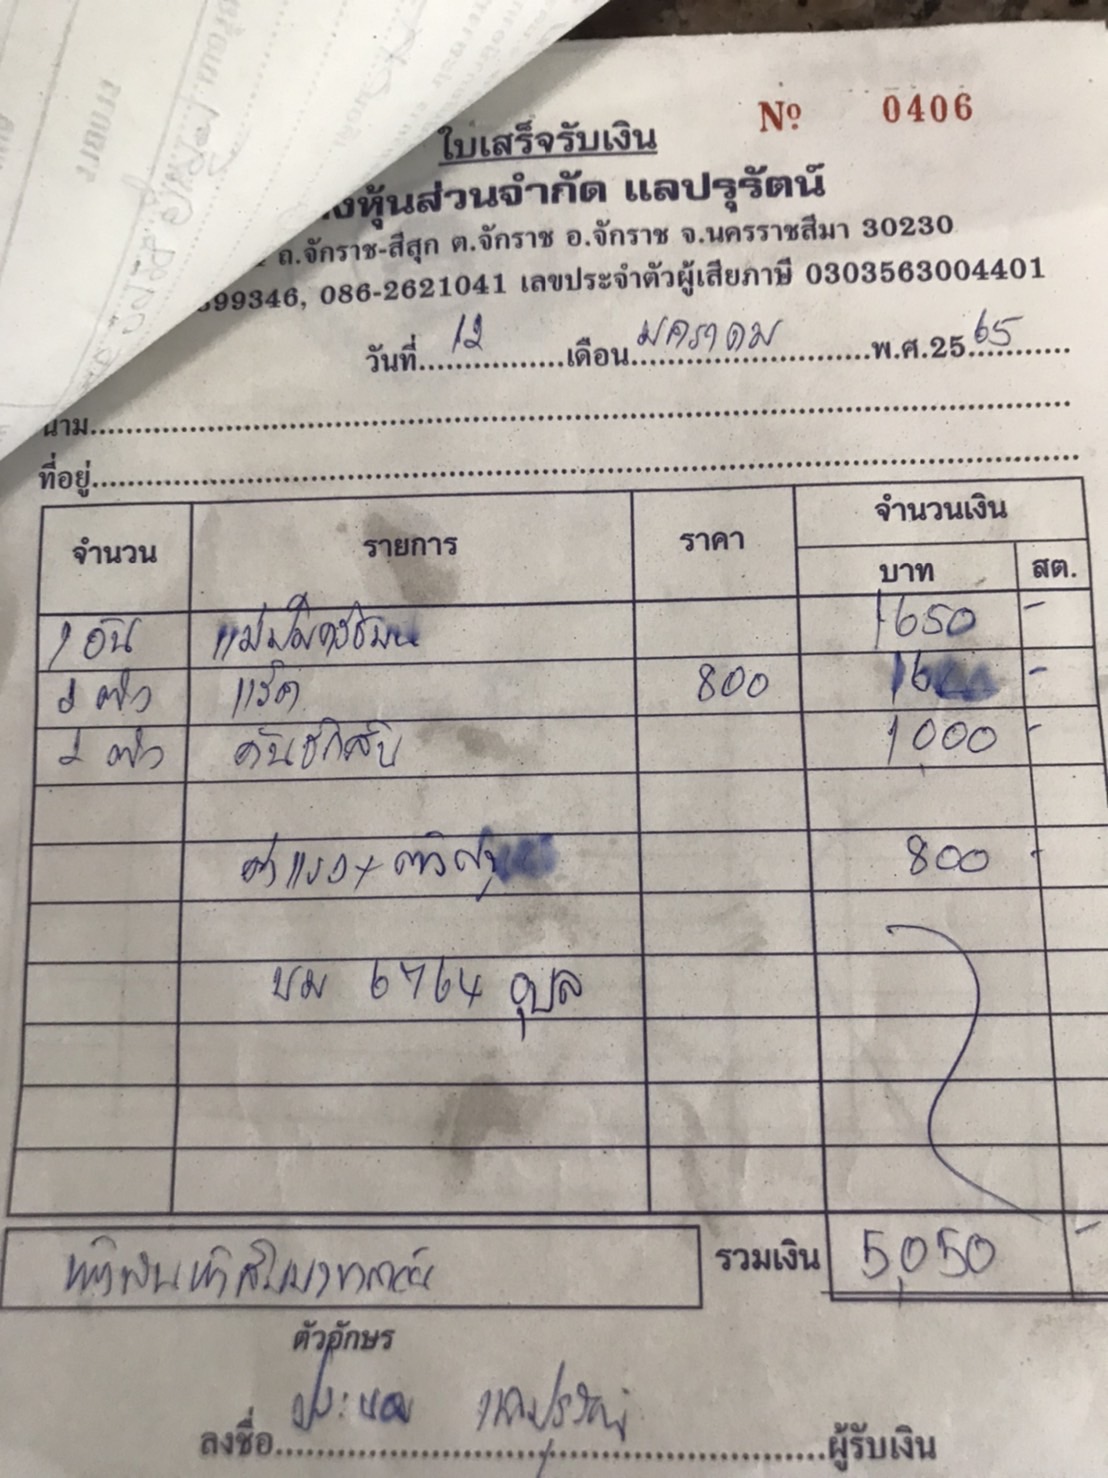 ใบเสร็จรับเงิน
Nº 0406
หุ้นส่วนจำกัด แลปรุรัตน์
ถ.จักราช-สีสุก ต.จักราช อ.จักราช จ.นครราชสีมา 30230
599346, 086-2621041 เลขประจำตัวผู้เสียภาษี 0303563004401
วันที่ 12 เดือน มกราคม พ.ศ.2565
นาม
ที่อยู่
จำนวน รายการ ราคา จำนวนเงิน
บาท สต.
1 อัน แม่ปั๊มครัชบน 1650 -
2 ตัว 800 -
2 ตัว คันชักส่ง 1000 -
ค่าแรง + 800 -
บม 6764 อุบล
รวมเงิน 5,050 -
ห้าพันห้าสิบบาทถ้วน
ตัวอักษร
ลงชื่อ ผู้รับเงิน